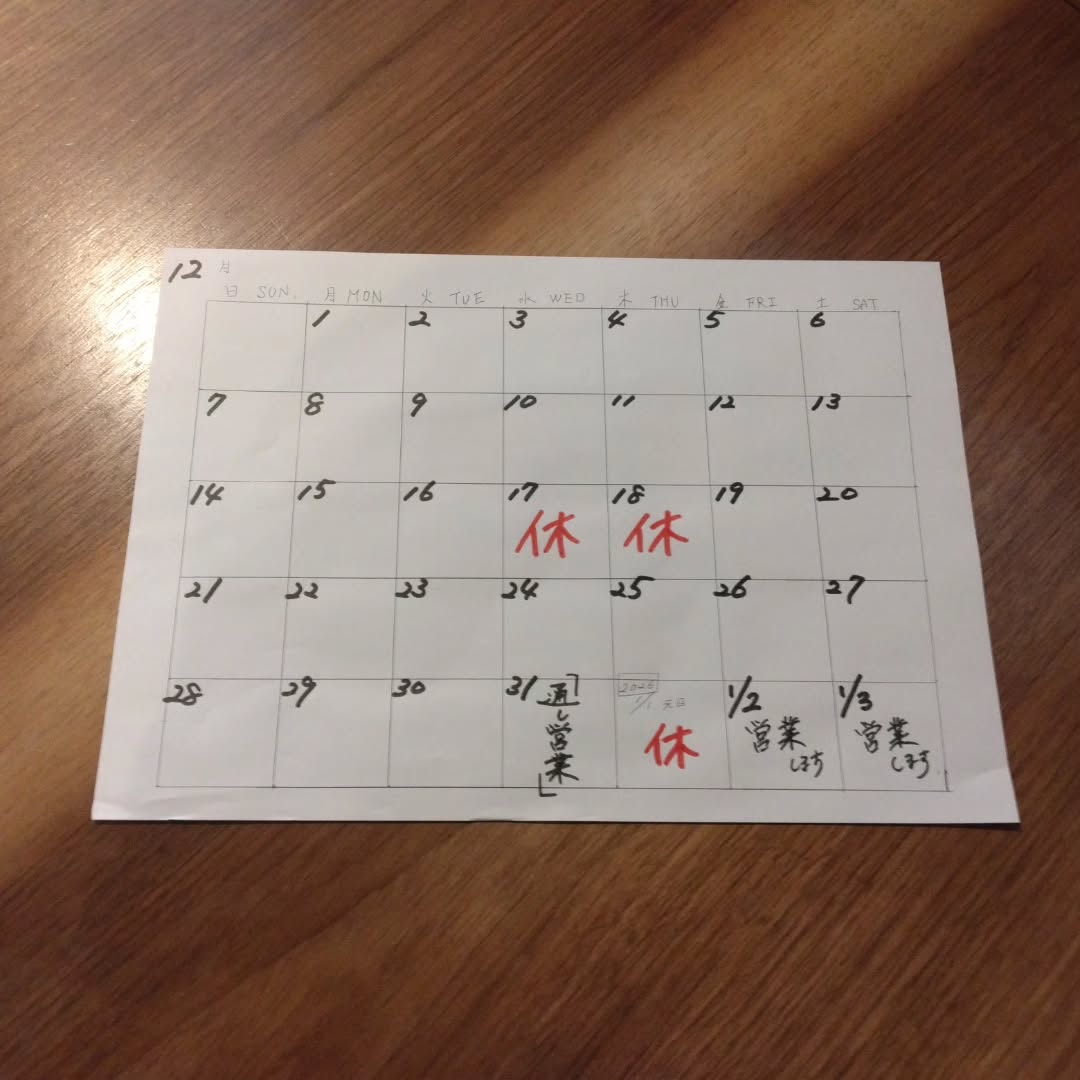 12月
日 SUN. 月 MON 火 TUE 水 WED 木 THU 金 FRI 土 SAT
1 2 3 4 5 6
7 8 9 10 11 12 13
14 15 16 17 18 19 20
休 休
21 22 23 24 25 26 27
28 29 30 31 「通し営業」 2026 1/1 元日 1/2 1/3
休 営業 営業
します します.